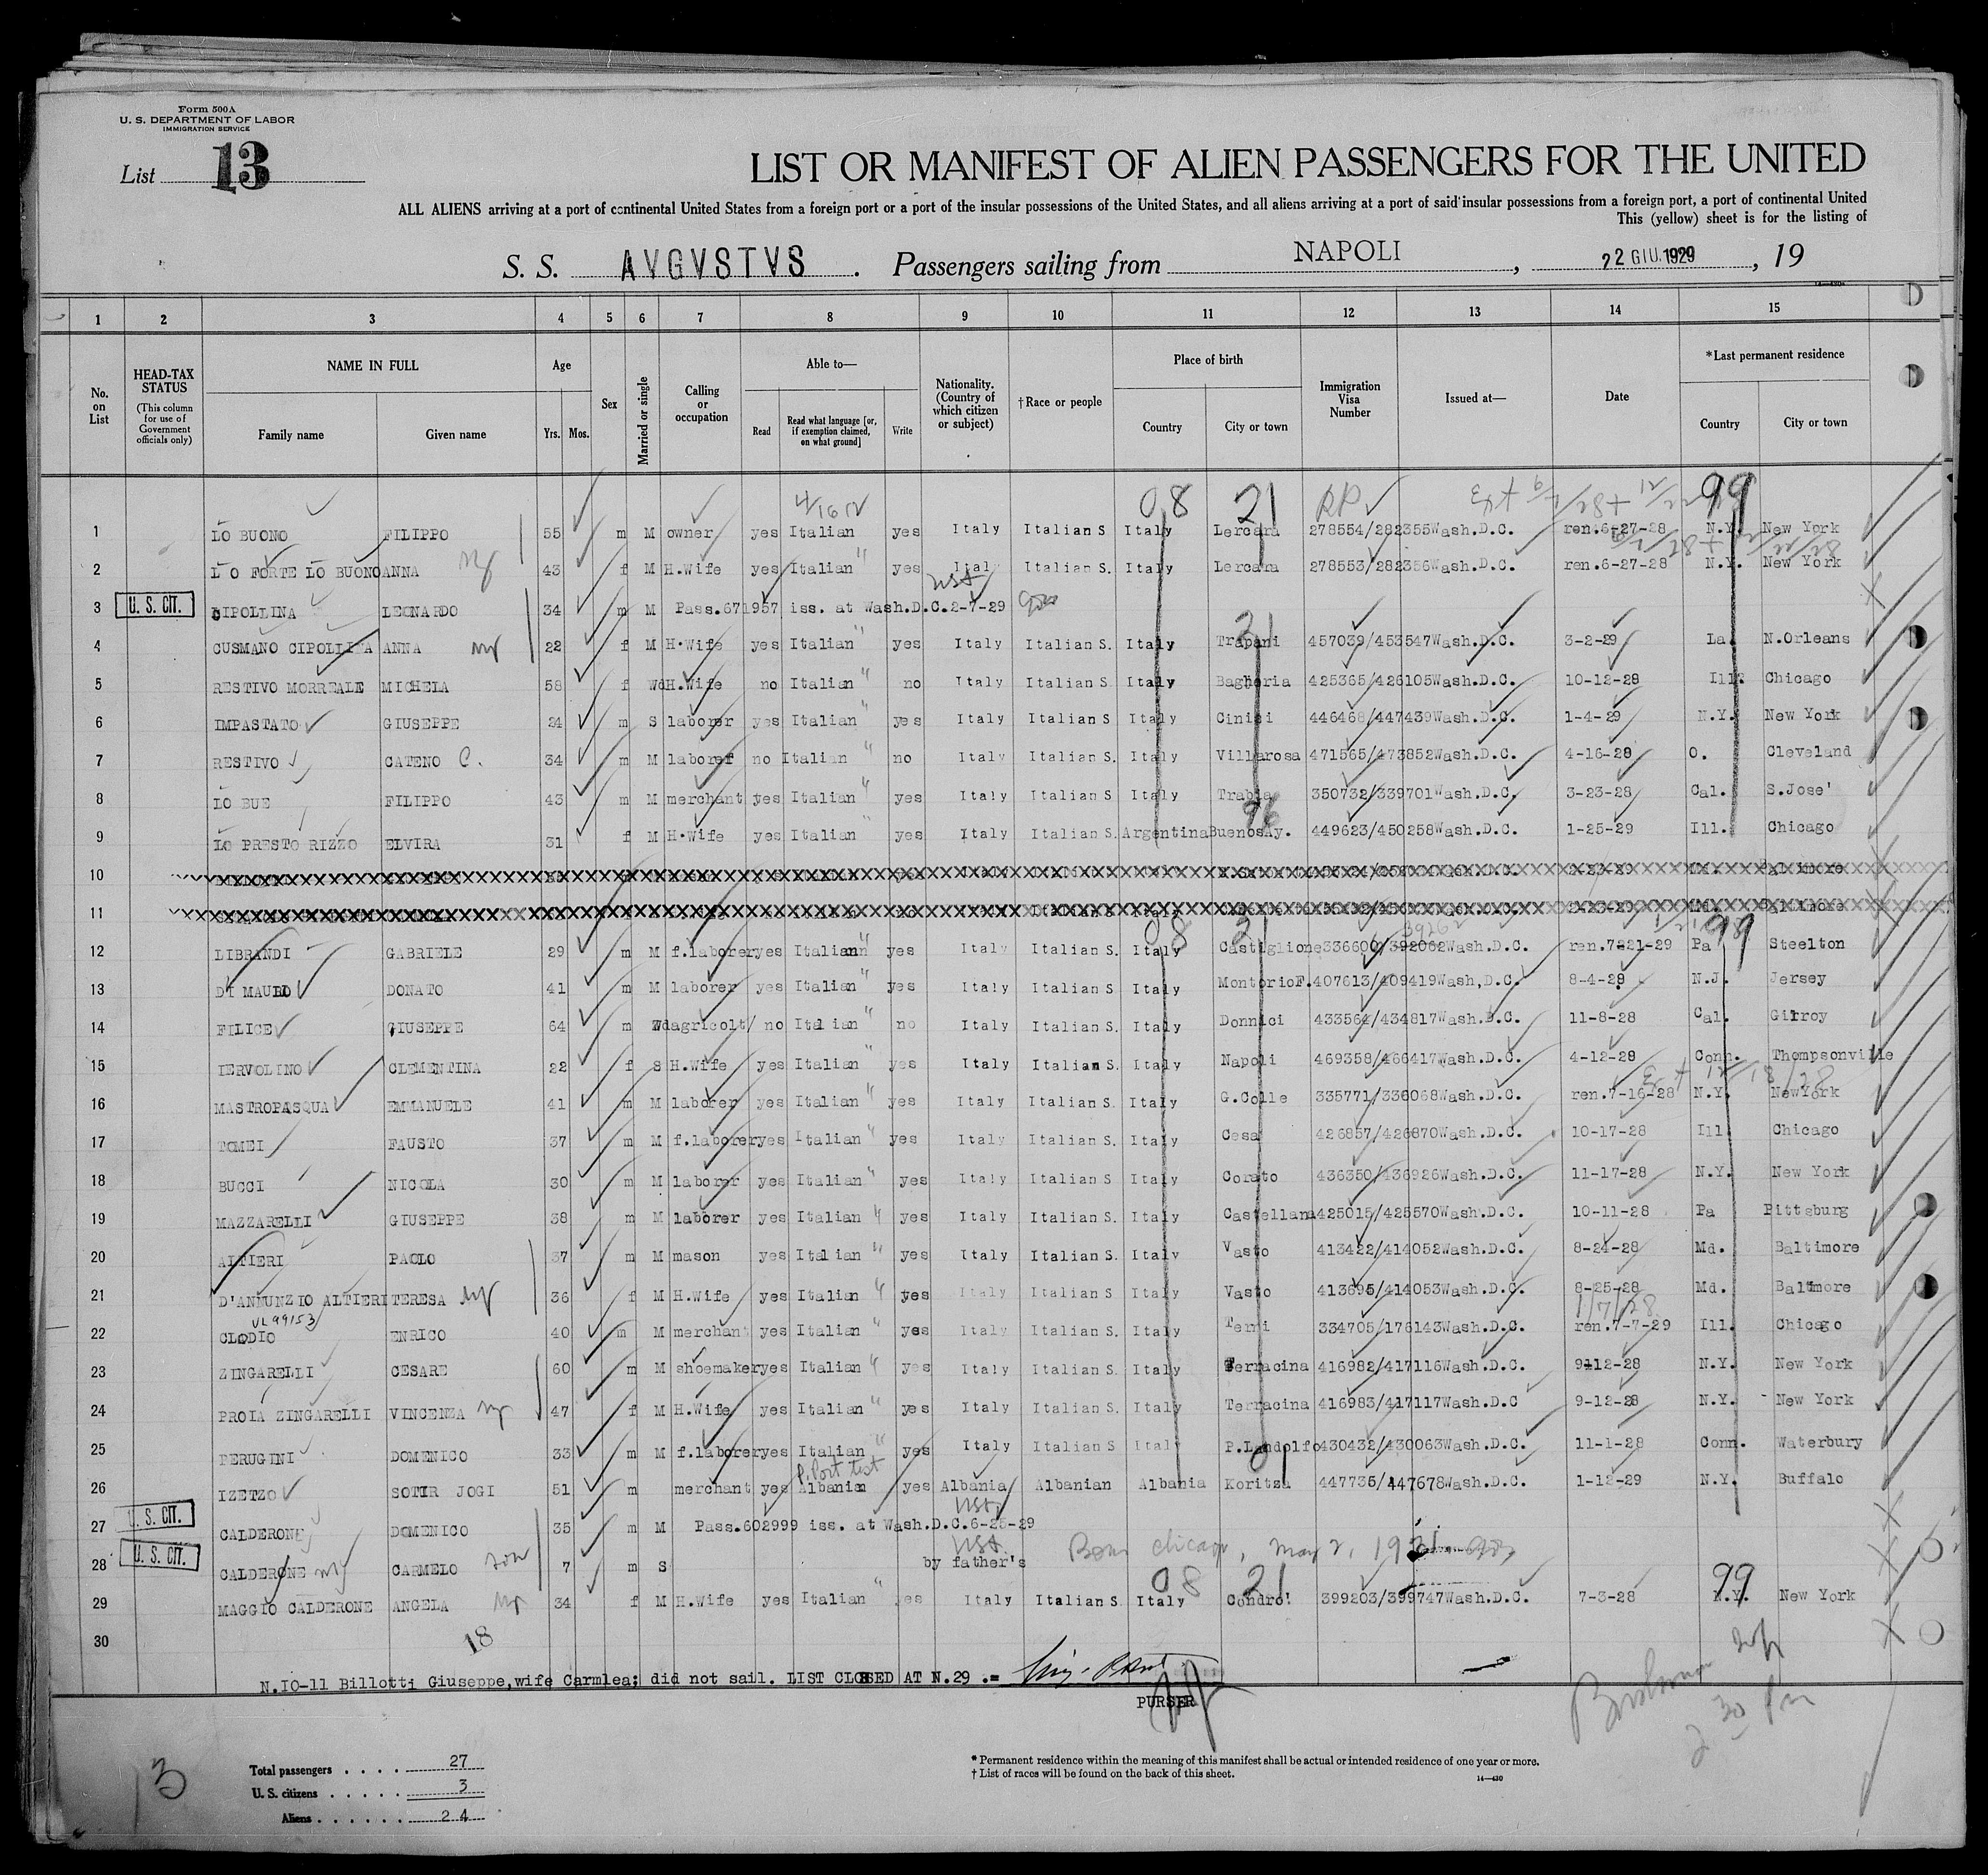 Form 500A
U. S. DEPARTMENT OF LABOR
IMMIGRATION SERVICE
List 13
LIST OR MANIFEST OF ALIEN PASSENGERS FOR THE UNITED
ALL ALIENS arriving at a port of continental United States from a foreign port or a port of the insular possessions of the United States, and all aliens arriving at a port of said insular possessions from a foreign port, a port of continental United
This (yellow) sheet is for the listing of
S. S. AVGVSTVS . Passengers sailing from NAPOLI , 22 GIU.1929 , 19
1 2 3 4 5 6 7 8 9 10 11 12 13 14 15
No. on List
HEAD-TAX STATUS
(This column for use of Government officials only)
NAME IN FULL
Family name Given name
Age
Yrs. Mos.
Sex
Married or single
Calling or occupation
Able to—
Read Read what language [or, if exemption claimed, on what ground] Write
Nationality. (Country of which citizen or subject)
†Race or people
Place of birth
Country City or town
Immigration Visa Number
Issued at—
Date
*Last permanent residence
Country City or town
08 21 99
1 LO BUONO FILIPPO 55 m M owner yes Italian yes Italy Italian S Italy Lercara 278554/282355 Wash.D.C. ren.6-27-28 N.Y. New York
2 LO FORTE LO BUONO ANNA 43 f M H.Wife yes Italian " yes Italy Italian S. Italy Lercara 278553/282356 Wash.D.C. ren.6-27-28 N.Y. New York
3 U. S. CIT. CIPOLLINA LEONARDO 34 m M Pass.671957 iss. at Wash.D.C.2-7-29
4 CUSMANO CIPOLLINA ANNA 22 f M H.Wife yes Italian " yes Italy Italian S. Italy Trapani 457039/453547 Wash.D.C. 3-2-29 La. N.Orleans
5 RESTIVO MORREALE MICHELA 58 f Wd H.Wife no Italian " no Italy Italian S Italy Bagheria 425365/426105 Wash.D.C. 10-12-28 Ill. Chicago
6 IMPASTATO GIUSEPPE 24 m S laborer yes Italian " yes Italy Italian S Italy Cinisi 446468/447439 Wash.D.C. 1-4-29 N.Y. New York
7 RESTIVO CATENO C. 34 m M laborer no Italian " no Italy Italian S. Italy Villarosa 471565/473852 Wash.D.C. 4-16-28 O. Cleveland
8 LO BUE FILIPPO 43 m M merchant yes Italian " yes Italy Italian S Italy Trabia 350732/339701 Wash.D.C. 3-23-28 Cal. S.Jose'
9 LO PRESTO RIZZO ELVIRA 31 f M H.Wife yes Italian " yes Italy Italian S. Argentina BuenosAy. 449623/450258 Wash.D.C. 1-25-29 Ill. Chicago
10
11
08 21 99
12 LIBRANDI GABRIELE 29 m M f.laborer yes Italian " yes Italy Italian S. Italy Castiglione 336600/392062 Wash.D.C. ren.7-21-29 Pa Steelton
13 DI MAURO DONATO 41 m M laborer yes Italian " yes Italy Italian S. Italy MontorioF. 407613/409419 Wash,D.C. 8-4-28 N.J. Jersey
14 FILICE GIUSEPPE 64 m Wd agricolt no Italian " no Italy Italian S. Italy Donnici 433564/434817 Wash.D.C. 11-8-28 Cal. Gilroy
15 IERVOLINO CLEMENTINA 22 f S H.Wife yes Italian " yes Italy Italian S. Italy Napoli 469358/466417 Wash.D.C. 4-12-28 Conn. Thompsonville
16 MASTROPASQUA EMMANUELE 41 m M laborer yes Italian " yes Italy Italian S. Italy G.Colle 335771/336068 Wash.D.C. ren.7-16-28 N.Y. NewYork
17 TOMEI FAUSTO 37 m M f.laborer yes Italian " yes Italy Italian S. Italy Cesa 426857/426870 Wash.D.C. 10-17-28 Ill Chicago
18 BUCCI NICOLA 30 m M laborer yes Italian " yes Italy Italian S Italy Corato 436350/436926 Wash.D.C. 11-17-28 N.Y. New York
19 MAZZARELLI GIUSEPPE 38 m M laborer yes Italian " yes Italy Italian S. Italy Castellana 425015/425570 Wash.D.C. 10-11-28 Pa Pittsburg
20 ALTIERI PAOLO 37 m M mason yes Italian " yes Italy Italian S. Italy Vasto 413422/414052 Wash.D.C. 8-24-28 Md. Baltimore
21 D'ANNUNZIO ALTIERI TERESA 36 f M H.Wife yes Italian " yes Italy Italian S. Italy Vasto 413695/414053 Wash.D.C. 8-25-28 Md. Baltimore
22 CLODIO ENRICO 40 m M merchant yes Italian " yes Italy Italian S. Italy Terni 334705/176143 Wash.D.C. ren.7-7-29 Ill. Chicago
23 ZINGARELLI CESARE 60 m M shoemaker yes Italian " yes Italy Italian S. Italy Terracina 416982/417116 Wash.D.C. 9-12-28 N.Y. New York
24 PROIA ZINGARELLI VINCENZA 47 f M H.Wife yes Italian " yes Italy Italian S. Italy Terracina 416983/417117 Wash.D.C 9-12-28 N.Y. New York
25 PERUGINI DOMENICO 33 m M f.laborer yes Italian " yes Italy Italian S Italy P.Landolfo 430432/430063 Wash.D.C. 11-1-28 Conn. Waterbury
26 IZETZO SOTIR JOGI 51 m merchant yes Albanian yes Albania Albanian Albania Koritza 447735/447678 Wash.D.C. 1-12-29 N.Y. Buffalo
27 U. S. CIT. CALDERONE DOMENICO 35 m M Pass.602999 iss. at Wash.D.C.6-25-29
28 U. S. CIT. CALDERONE CARMELO son 7 m S by father's Born Chicago, May 2, 1921
08 21 99
29 MAGGIO CALDERONE ANGELA 34 f M H.Wife yes Italian " yes Italy Italian S Italy Condro' 399203/399747 Wash.D.C. 7-3-28 N.Y. New York
30
18
N.10-11 Billotti Giuseppe,wife Carmlea; did not sail. LIST CLOSED AT N.29 .=
PURSER
3
Total passengers . . . . 27
U. S. citizens . . . . . 3
Aliens . . . . . . 24
* Permanent residence within the meaning of this manifest shall be actual or intended residence of one year or more.
† List of races will be found on the back of this sheet.
14—430
2 30 Pm